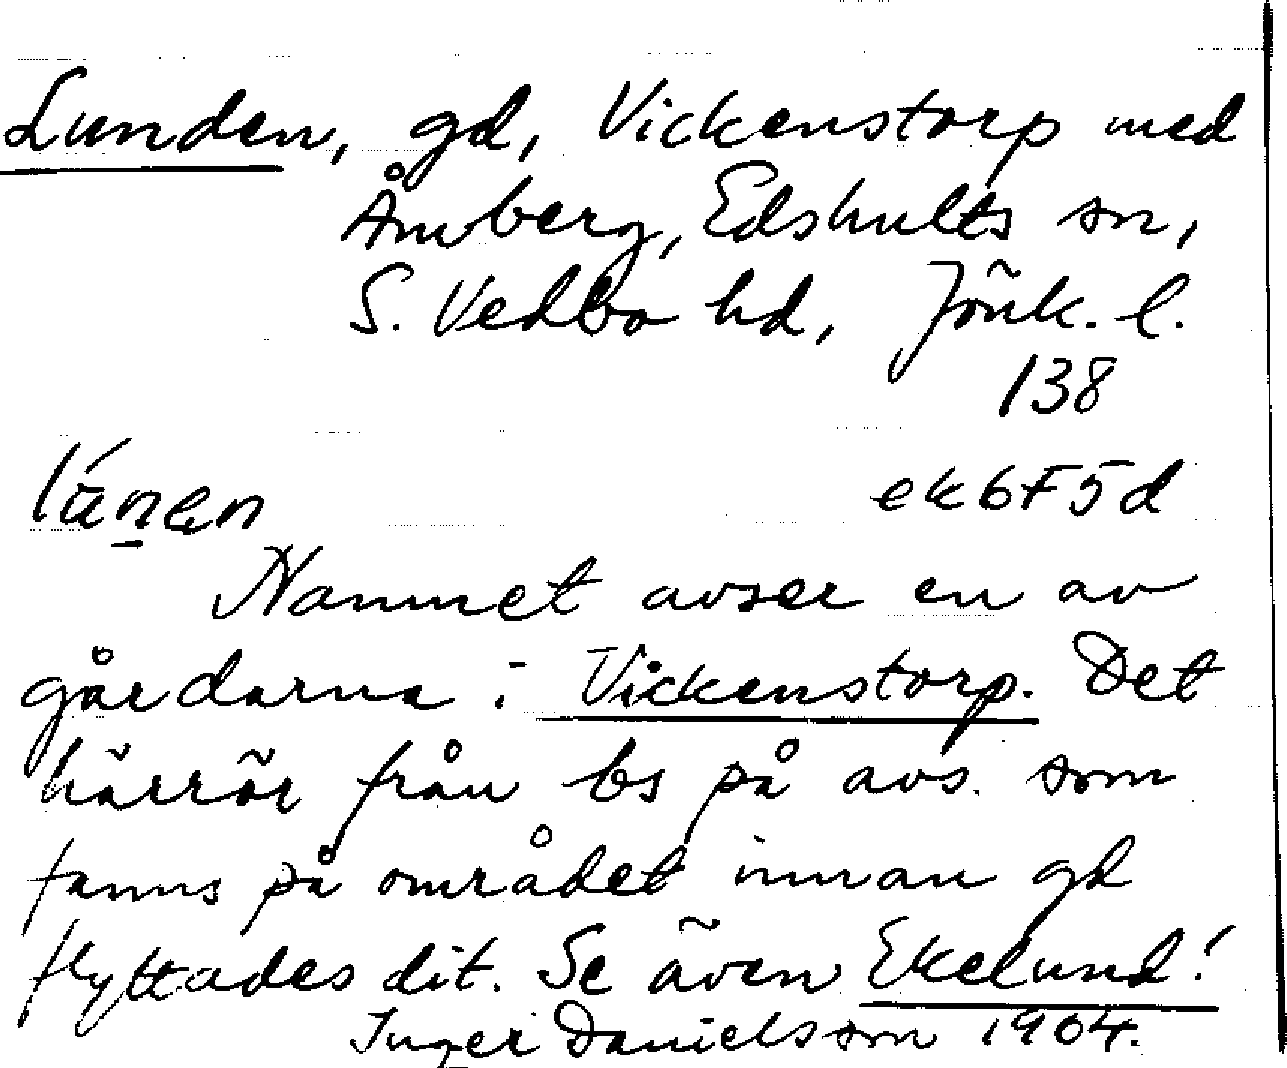 Lunden, gd, Vickenstorp med
Åmberg, Edshults sn,
S. Vedbo hd, Jönk. l.
138
ek6F5d
Namnet avser en av
gårdarna i Vickenstorp. Det
härrör från bs på avs. som
fanns på området innan gd
flyttades dit. Se även Ekelund!
Inger Danielsson 1904.